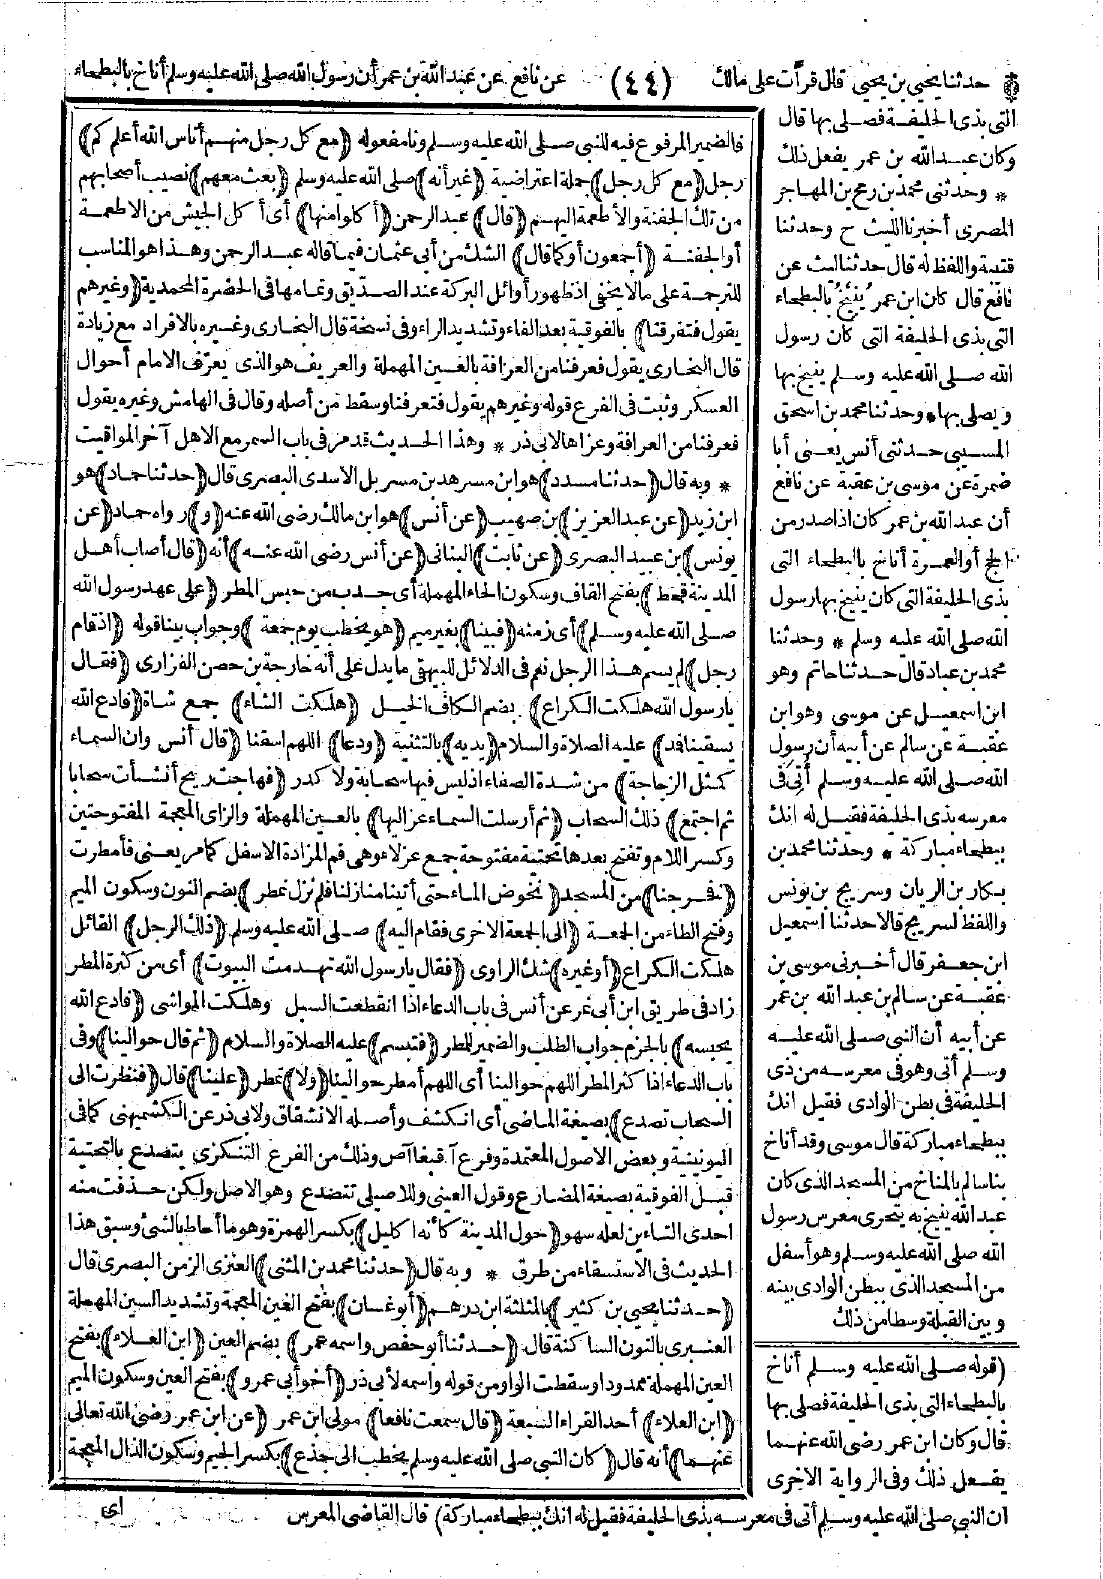 حدثنا يحيى بن يحيى قال قرأت على مالك (٤٤) عن نافع عن عبد الله بن عمر أن رسول الله صلى الله عليه وسلم أناخ بالبطحاء
التى بذى الحليفة فصلى بها قال
وكان عبد الله بن عمر يفعل ذلك
* وحدثنى محمد بن رمح بن المهاجر
المصرى أخبرنا الليث ح وحدثنا
قتيبة واللفظ له قال حدثنا ليث عن
نافع قال كان ابن عمر يُنِيخُ بالبطحاء
التى بذى الحليفة التى كان رسول
الله صلى الله عليه وسلم ينيخ بها
ويصلى بها * وحدثنا محمد بن اسحق
المسيبى حدثنى أنس يعنى أبا
ضمرة عن موسى بن عقبة عن نافع
أن عبد الله بن عمر كان اذا صدر من
الحج أو العمرة أناخ بالبطحاء التى
بذى الحليفة التى كان ينيخ بها رسول
الله صلى الله عليه وسلم * وحدثنا
محمد بن عباد قال حدثنا حاتم وهو
ابن اسمعيل عن موسى وهو ابن
عقبة عن سالم عن أبيه أن رسول
الله صلى الله عليه وسلم أُتِىَ فى
معرسه بذى الحليفة فقيل له انك
ببطحاء مباركة * وحدثنا محمد بن
بكار بن الريان وسريج بن يونس
واللفظ لسريج قالا حدثنا اسمعيل
ابن جعفر قال أخبرنى موسى بن
عقبة عن سالم بن عبد الله بن عمر
عن أبيه أن النبى صلى الله عليه
وسلم أتى وهو فى معرسه من ذى
الحليفة فى بطن الوادى فقيل انك
ببطحاء مباركة قال موسى وقد أناخ
بنا سالم بالمناخ من المسجد الذى كان
عبد الله ينيخ به يتحرى معرس رسول
الله صلى الله عليه وسلم وهو أسفل
من المسجد الذى ببطن الوادى بينه
وبين القبلة وسطا من ذلك
(قوله صلى الله عليه وسلم أناخ
بالبطحاء التى بذى الحليفة فصلى بها
قال وكان ابن عمر رضى الله عنهما
يفعل ذلك وفى الرواية الاخرى
ان النبى صلى الله عليه وسلم أتى فى معرسه بذى الحليفة فقيل له انك ببطحاء مباركة) قال القاضى المعرس
فالضمير المرفوع فيه للنبى صلى الله عليه وسلم ونا مفعوله (مع كل رجل منهم أناس الله أعلم كم)
رجل (مع كل رجل) جملة اعتراضية (غير أنه) صلى الله عليه وسلم (بعث معهم) نصيب أصحابهم
من تلك الجفنة والأطعمة اليهم (قال) عبد الرحمن (أكلوا منها) أى أكل الجيش من الاطعمة
أو الجفنة (أجمعون أو كما قال) الشك من أبى عثمان فيما قاله عبد الرحمن وهذا هو المناسب
للترجمة على ما لا يخفى اذ ظهور أوائل البركة عند الصديق وتمامها فى الحضرة المحمدية (وغيرهم
يقول فتفرقنا) بالفوقية بعد الفاء وتشديد الراء وفى نسخة قال البخارى وغيره بالافراد مع زيادة
قال البخارى يقول فعرفنا من العرافة بالعين المهملة والعريف هو الذى يعرّف الامام أحوال
العسكر وثبت فى الفرع قوله وغيرهم يقول فتعرفنا وسقط من أصله وقال فى الهامش وغيره يقول
فعرفنا من العرافة وعزاها لابى ذر * وهذا الحديث قد مر فى باب السمر مع الاهل آخر المواقيت
* وبه قال (حدثنا مسدد) هو ابن مسرهد بن مسربل الاسدى البصرى قال (حدثنا حماد) هو
ابن زيد (عن عبد العزيز) بن صهيب (عن أنس) هو ابن مالك رضى الله عنه (و) رواه حماد (عن
يونس) بن عبيد البصرى (عن ثابت) البنانى (عن أنس رضى الله عنه) أنه (قال أصاب أهل
المدينة قحط) بفتح القاف وسكون الحاء المهملة أى جدب من حبس المطر (على عهد رسول الله
صلى الله عليه وسلم) أى زمنه (فبينا) بغير ميم (هو يخطب يوم جمعة) وجواب بينا قوله (اذ قام
رجل) لم يسم هذا الرجل نعم فى الدلائل للبيهقى ما يدل على أنه خارجة بن حصن الفزارى (فقال
يا رسول الله هلكت الكراع) بضم الكاف الخيل (هلكت الشاء) جمع شاة (فادع الله
يسقينا فمد) عليه الصلاة والسلام (يديه) بالتثنية (ودعا) اللهم اسقنا (قال أنس وان السماء
كمثل الزجاجة) من شدة الصفاء اذ ليس فيها سحابة ولا كدر (فهاجت ريح أنشأت سحابا
ثم اجتمع) ذلك السحاب (ثم أرسلت السماء عزاليها) بالعين المهملة والزاى المعجمة المفتوحتين
وكسر اللام وتفتح بعدها تحتية مفتوحة جمع عزلاء وهى فم المزادة الاسفل كما مر يعنى فأمطرت
(فخرجنا) من المسجد (نخوض الماء حتى أتينا منازلنا فلم نزل نمطر) بضم النون وسكون الميم
وفتح الطاء من الجمعة (الى الجمعة الاخرى فقام اليه) صلى الله عليه وسلم (ذلك الرجل) القائل
هلكت الكراع (أو غيره) شك الراوى (فقال يا رسول الله تهدمت البيوت) أى من كثرة المطر
زاد فى طريق ابن أبى نمر عن أنس فى باب الدعاء اذا انقطعت السبل وهلكت المواشى (فادع الله
يحبسه) بالجزم جواب الطلب والضمير للمطر (فتبسم) عليه الصلاة والسلام (ثم قال حوالينا) وفى
باب الدعاء اذا كثر المطر اللهم حوالينا أى اللهم أمطر حوالينا (ولا) تمطر (علينا) قال (فنظرت الى
السحاب تصدع) بصيغة الماضى أى انكشف وأصله الانشقاق ولابى ذر عن الكشميهنى كما فى
اليونينية وبعض الاصول المعتمدة وفرع آقبغا آص وذلك من الفرع التنكزى يتصدع بالتحتية
قبل الفوقية بصيغة المضارع وقول العينى وللاصيلى تتصدع وهو الاصل ولكن حذفت منه
احدى التاءين لعله سهو (حول المدينة كأنه اكليل) بكسر الهمزة وهو ما أحاط بالشئ وسبق هذا
الحديث فى الاستسقاء من طرق * وبه قال (حدثنا محمد بن المثنى) العنزى الزمن البصرى قال
(حدثنا يحيى بن كثير) بالمثلثة ابن درهم (أبو غسان) بفتح الغين المعجمة وتشديد السين المهملة
العنبرى بالنون الساكنة قال (حدثنا أبو حفص واسمه عمر) بضم العين (ابن العلاء) بفتح
العين المهملة ممدودا وسقطت الواو من قوله واسمه لأبى ذر (أخو أبى عمرو) بفتح العين وسكون الميم
(ابن العلاء) أحد القراء السبعة (قال سمعت نافعا) مولى ابن عمر (عن ابن عمر رضى الله تعالى
عنهما) أنه قال (كان النبى صلى الله عليه وسلم يخطب الى جذع) بكسر الجيم وسكون الذال المعجمة
أى